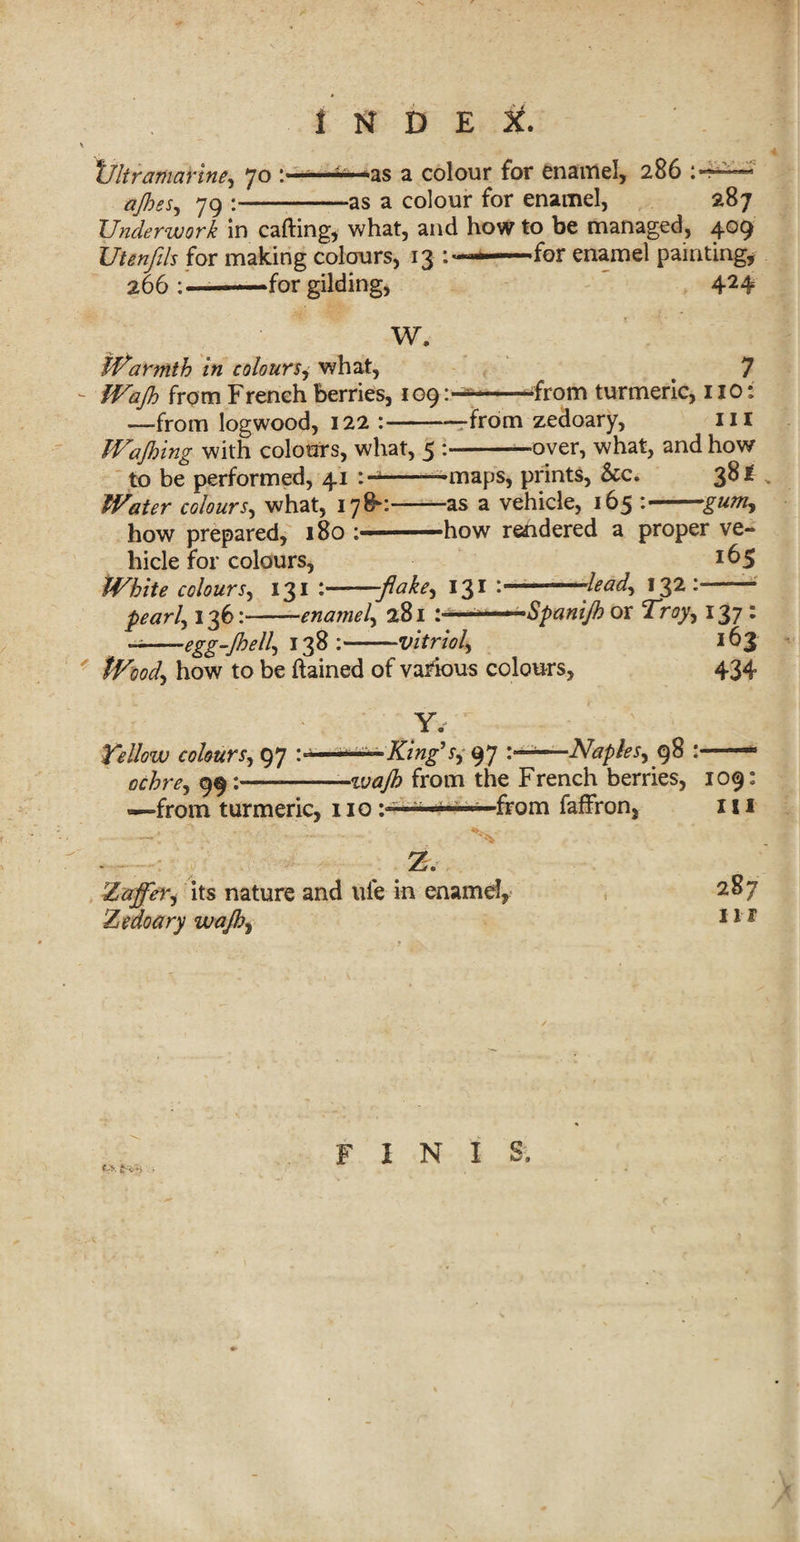 INDEX.
Ultramarine, 70 :———as a colour for enamel, 286 :——
aſhes, 79 :———as a colour for enamel, 287
Underwork in caſting, what, and how to be managed, 409
Utenſils for making colours, 13 :———for enamel painting,
266 :———for gilding, 424
W.
Warmth in colours, what, 7
Waſh from French berries, 109:———from turmeric, 110:
—from logwood, 122 :———from zedoary, 111
Waſhing with colours, what, 5 :———over, what, and how
to be performed, 41 :———maps, prints, &c. 381
Water colours, what, 178:——as a vehicle, 165 :——gum,
how prepared, 180 :———how rendered a proper ve-
hicle for colours, 165
White colours, 131 :——flake, 131 :———lead, 132 :——
pearl, 136:——enamel, 281 :———Spaniſh or Troy, 137 :
——egg-ſhell, 138 :——vitriol, 163
Wood, how to be ſtained of various colours, 434
Y.
Yellow colours, 97 :———King's, 97 :——Naples, 98 :——
ochre, 99 :———waſh from the French berries, 109:
—from turmeric, 110 :———from ſaffron, 111
Z.
Zaffer, its nature and uſe in enamel, 287
Zedoary waſh, 111
FINIS.